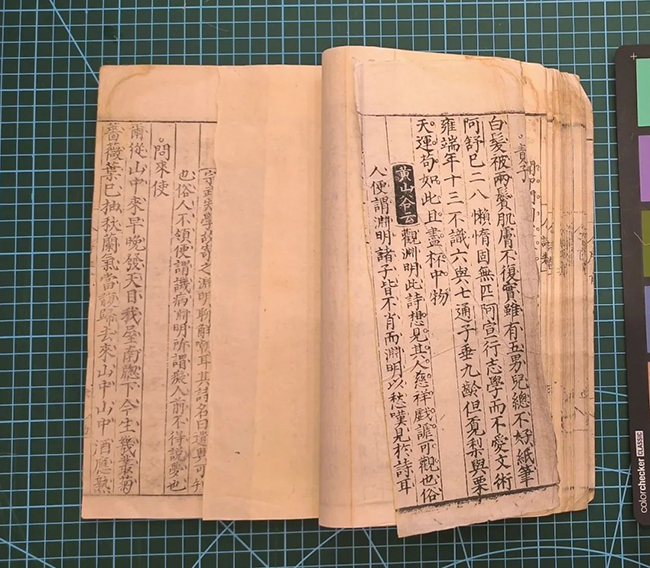 責子
白髮被兩鬢肌膚不復實雖有五男兒總不好紙筆
阿舒已二八懶惰固無匹阿宣行志學而不愛文術
雍端年十三不識六與七通子垂九齡但覓梨與栗
天運苟如此且盡杯中物
黃山谷云觀淵明此詩想見其人慈祥戲謔可觀也俗
人便謂淵明諸子皆不肖而淵明以愁嘆見於詩耳
失學故寄之淵明聊解嘲耳其詩名曰遣興可
也俗人不領便謂譏病淵明所謂癡人前不得說夢也
問來使
爾從山中來早晚發天目我屋南牕下今生幾叢菊
薔薇葉已抽秋蘭氣當馥歸去來山中山中酒應熟
colorchecker CLASSIC